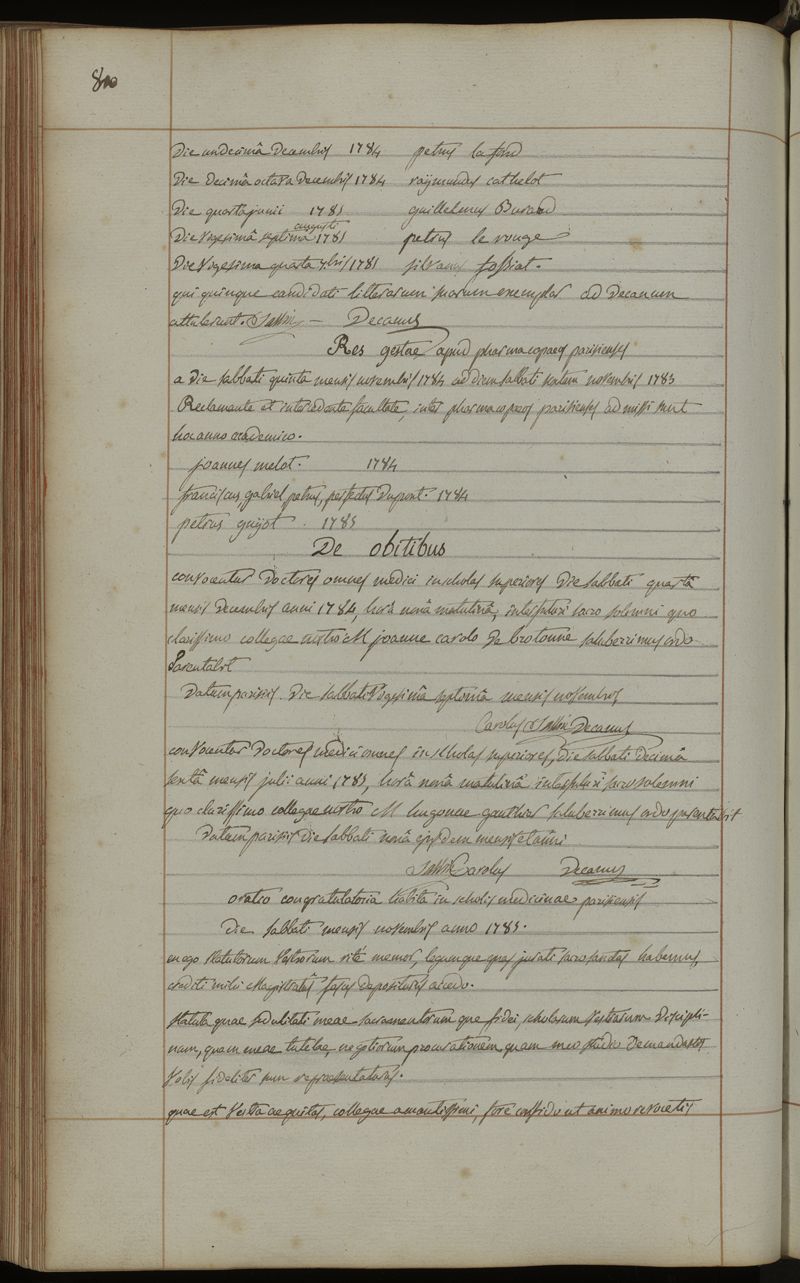 810
Die undecimâ Decembris 1784 petrus la fond
Die Decimâ octava Decembris 1784 raymundus cathelot
Die quarta junii 1785 guillelmus
Die Vigesimâ septimâ augusti 1785 petrus le rouge
Die Vigesima quarta 7bris 1785 silvanus fossiat.
qui quinque candidati litterarum suarum exemplar ad Decanum
attulerunt. Sallin Decanus
Res gestae apud pharmacopaeos parisienses
a Die sabbati quinta mensis novembris 1784 ad diem sabbati novembris 1785
Reclamante et intercedente facultate, inter pharmacopaeos parisienses admissi sunt
hoc anno academico.
joannes melot. 1784
franciscus, gabriel petrus, perfectus Dupont. 1784
petrus guijot. 1785
De obitibus
convocentur Doctores omnes medici in scholas superiores Die sabbati quartâ
mensis Decembris anni 1784, horâ nonâ matutinâ, interfuturi sacro solemni quo
clarissimo collegae nostro M joanne carolo De brotonne saluberrimus ordo
Parentabit
Datum parisiis Die sabbati Vigesimâ septimâ mensis novembris
Carolus Sallin Decanus
convocentur Doctores medici omnes in scholas superiores, die sabbati Decimâ
sextâ mensis julii anni 1785, horâ nonâ matutinâ interfuturi sacro solemni
quo clarissimo collegae nostro M hugonne gauthier saluberrimus ordo parentabit
Datum parisiis Die sabbati nonâ ejusdem mensis et anni
Sallin Carolus Decanus
oratio congratulatoria habita in scholis medicinae parisiensis
Die sabbati mensis novembris anno 1785.
en ego statutorum Vestrorum rité memor, legumque quas jurati sacrosanctas habemus,
crediti mihi Magistratûs fasces depositurus accedo.
statuta quae sedulitati meae sacramentorumque fidei, scholarum Vestrarum Discipli-
nam, quam meae tutelae, negotiorum procurationem quam meo studio Demandastis
Vobis fideliter sum repraesentaturus.
quae est Vestra aequitas, collegae amantissimi, fore confido ut animo revocetis